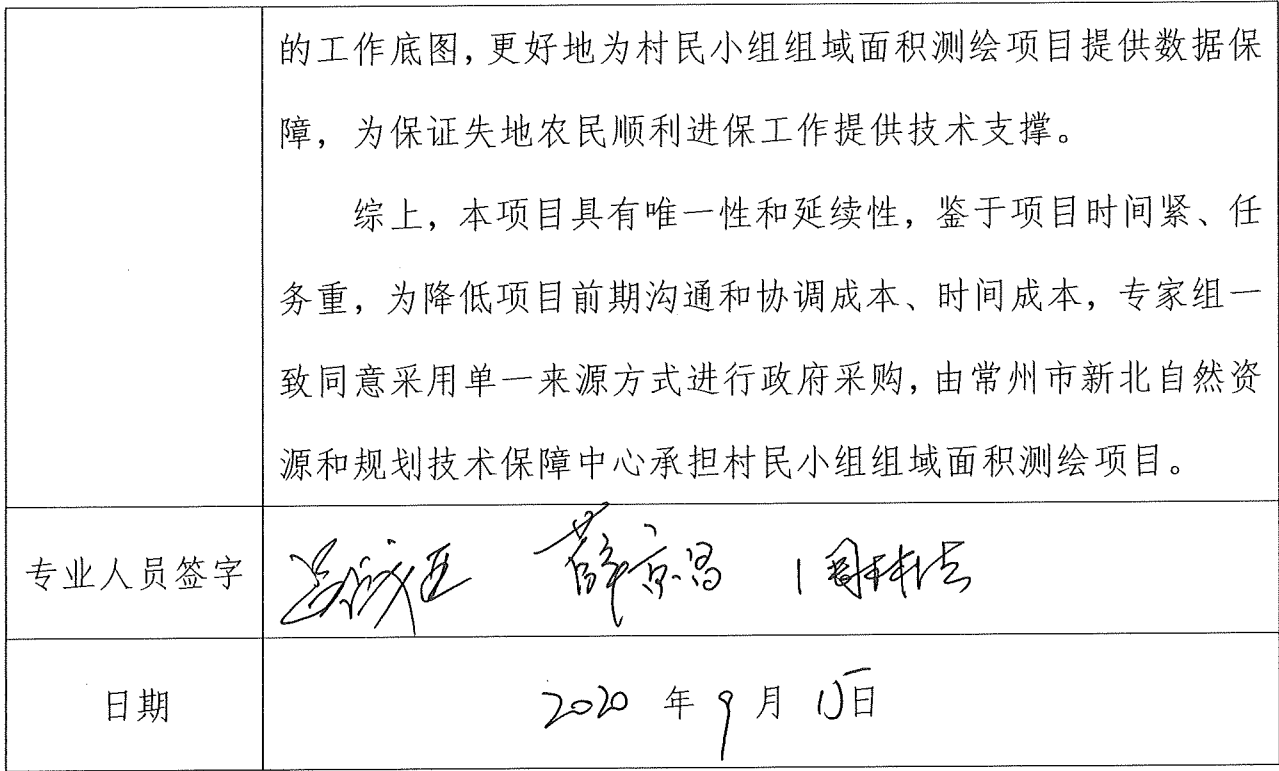 的工作底图，更好地为村民小组组域面积测绘项目提供数据保
障，为保证失地农民顺利进保工作提供技术支撑。
综上，本项目具有唯一性和延续性，鉴于项目时间紧、任
务重，为降低项目前期沟通和协调成本、时间成本，专家组一
致同意采用单一来源方式进行政府采购，由常州市新北自然资
源和规划技术保障中心承担村民小组组域面积测绘项目。
专业人员签字 薛京昌
日期 2020 年 9 月 15日